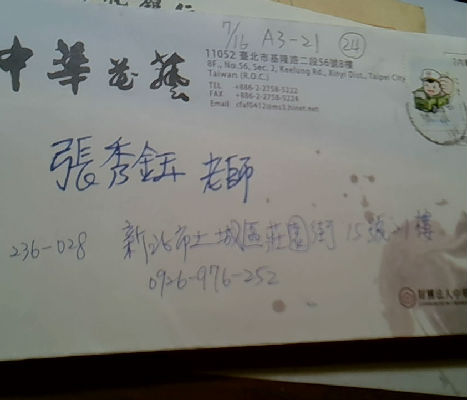 7/16 A3-21 24
中華花藝
11052 臺北市基隆路二段56號8樓
8F., No.56, Sec. 2, Keelung Rd., Xinyi Dist., Taipei City
Taiwan (R.O.C.)
TEL +886-2-2758-5222
FAX +886-2-2758-5224
Email: cfaf0412@ms3.hinet.net
張秀鈺 老師
236-028 新北市土城區莊園街15號21樓
0926-976-252
財團法人中